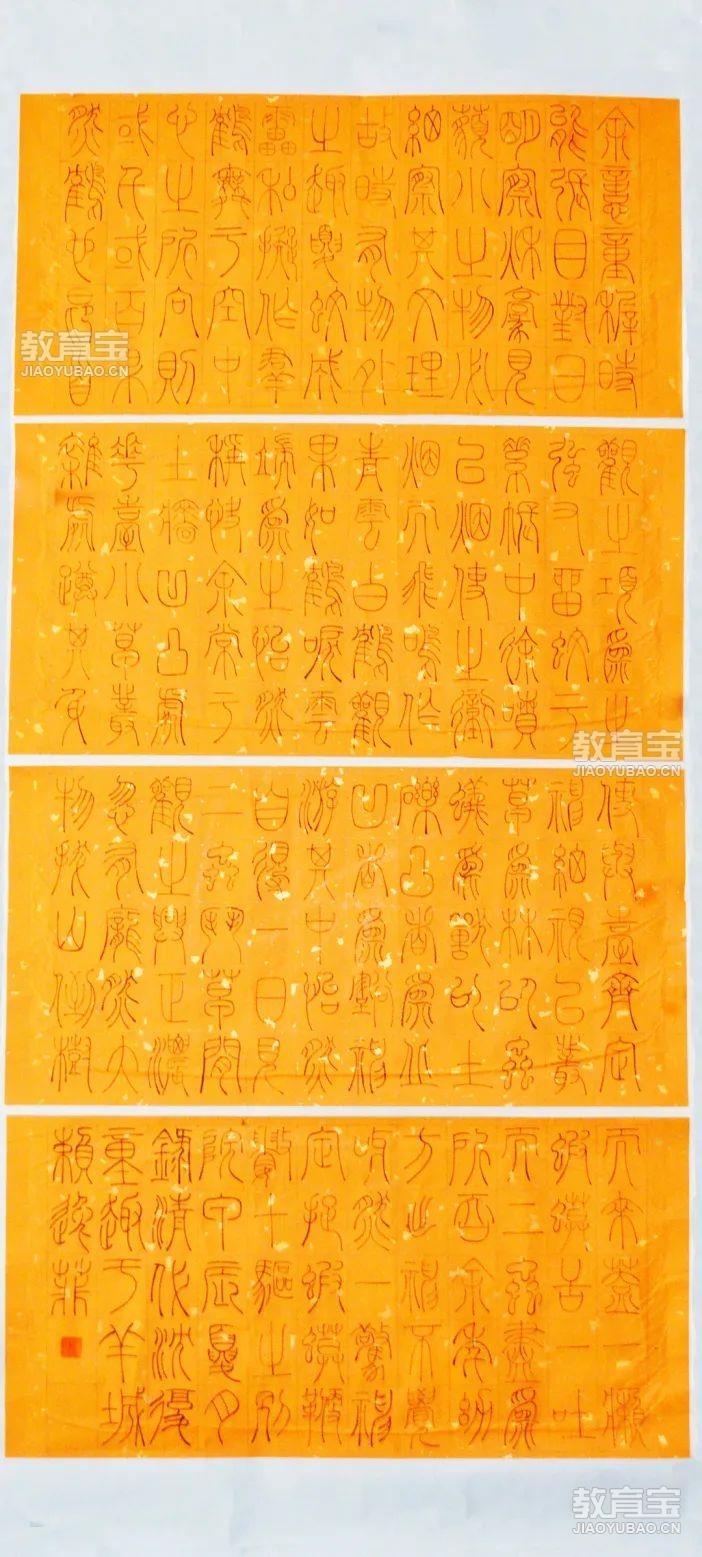 余憶童稺時
能張目對日
明察秋豪見
藐小之物必
細察其文理
故時有物外
之趣夏蚊成
雷私擬作羣
鶴舞亏空中
心之所向則
或千或百果
然鶴也昂首
觀之項爲之
強又畱蚊亏
素帳中徐噴
以烟使之衝
烟而飛鳴作
青雲白鶴觀
果如鶴唳雲
端爲之怡然
稱快余常亏
土牆凹凸處
花臺小草叢
雜處蹲其身
使與臺齊定
神細視以叢
草爲林以蟲
蟻爲獸以土
礫凸者爲丘
凹者爲壑神
游其中怡然
自得一日見
二蟲鬥草間
觀之興正濃
忽有龐然大
物拔山倒樹
而來蓋一癩
蝦蟆舌一吐
而二蟲盡爲
所吞余年幼
方出神不覺
呀然一驚神
定捉蝦蟆鞭
數十驅之別
院甲辰夏月
錄清代沈復
童趣亏羊城
賴逸菲
教育宝
JIAOYUBAO.CN
教育宝
JIAOYUBAO.CN
教育宝
JIAOYUBAO.CN